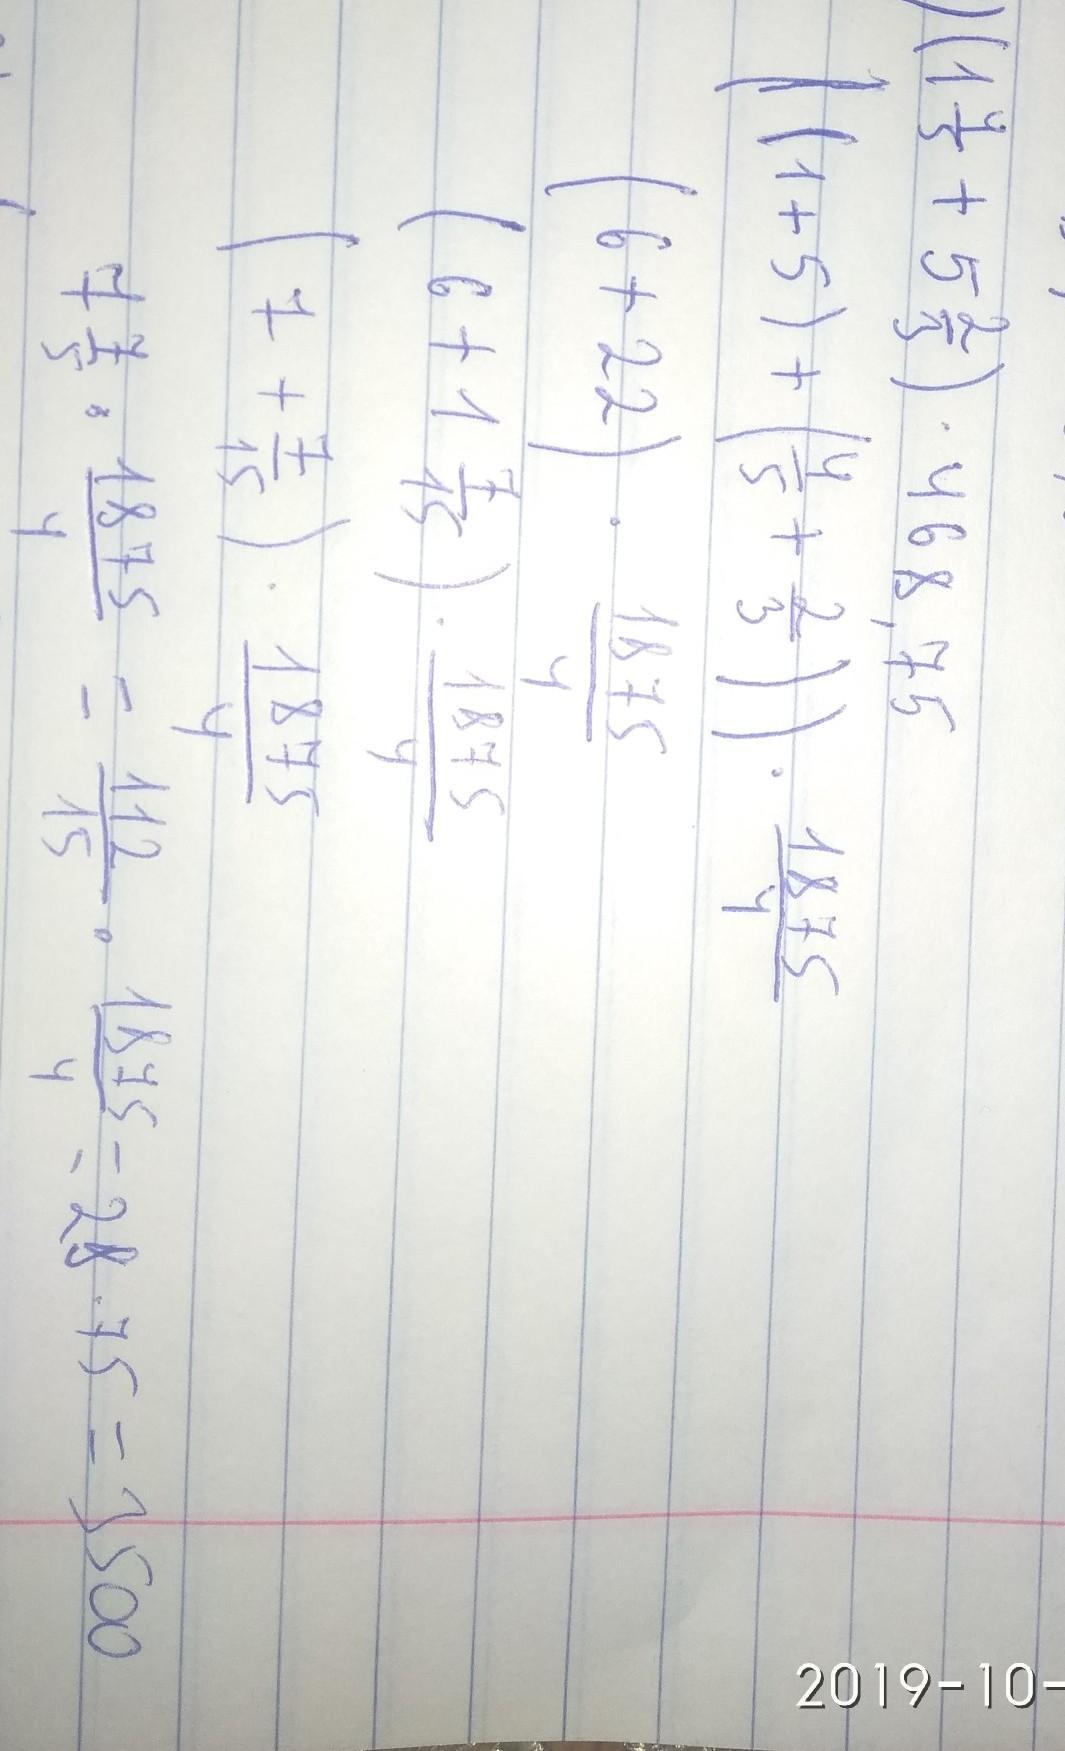 )(1 4/5 + 5 2/3) · 468,75
((1+5)+(4/5 + 2/3)) · 1875/4
(6+22) · 1875/4
(6+1 7/15) · 1875/4
(7 + 7/15) · 1875/4
7 7/5 · 1875/4 = 112/15 · 1875/4 = 28 · 75 = 3500
2019-10-